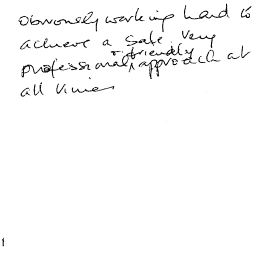 Obviously working hard to
achieve a safe. Very
professional, & friendly approach at
all times